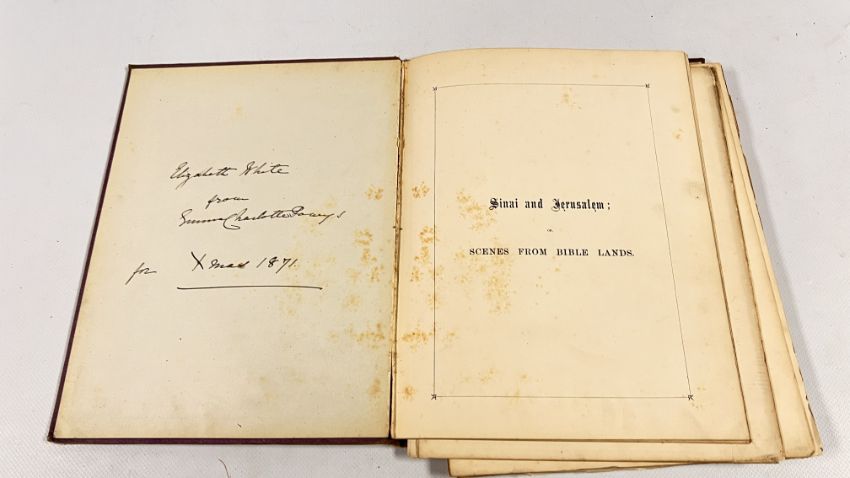 Elizabeth White
from
Emma Charlotte Powys
for Xmas 1871.
Sinai and Jerusalem;
OR,
SCENES FROM BIBLE LANDS.